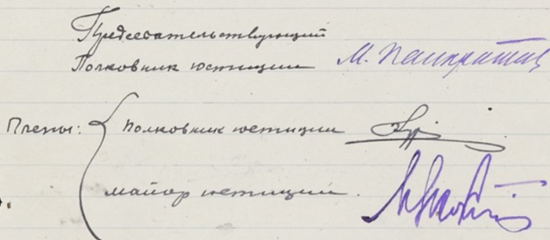 Председательствующий
Полковник юстиции М. Панкратов
Члены: полковник юстиции
майор юстиции.